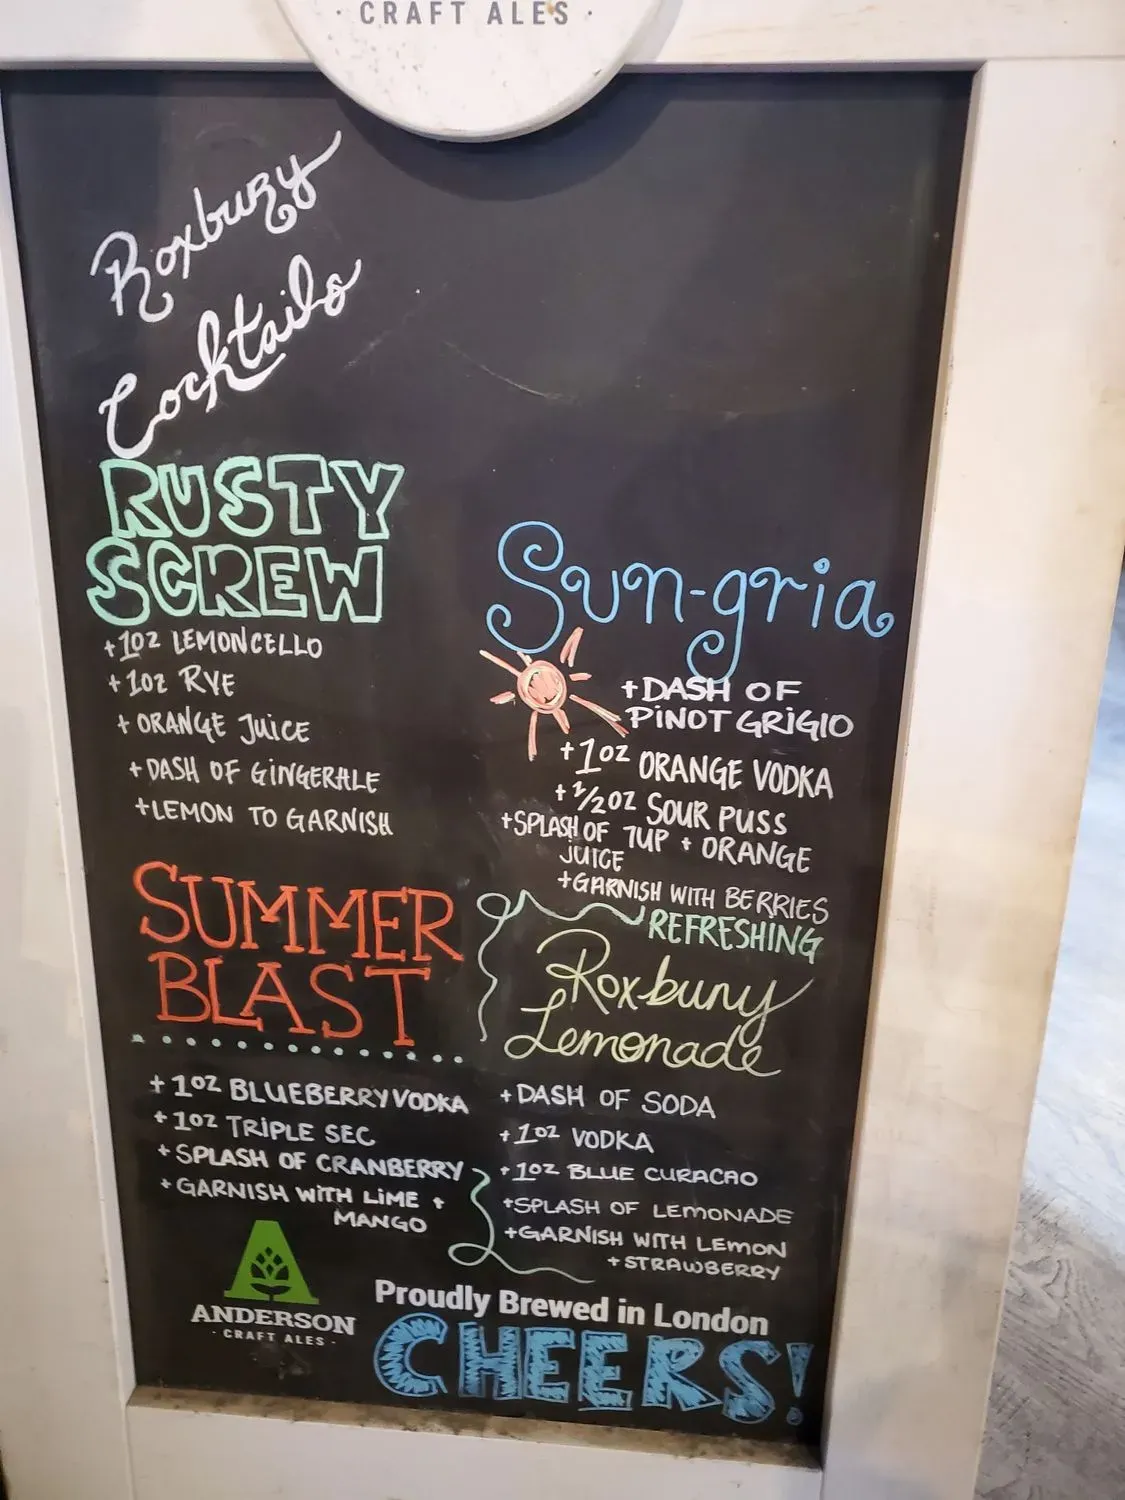 · CRAFT ALES ·
Roxbury
Cocktails
RUSTY
SCREW
+1OZ LEMONCELLO
+1OZ RYE
+ ORANGE JUICE
+DASH OF GINGERALE
+LEMON TO GARNISH
SUMMER
BLAST
+ 1OZ BLUEBERRY VODKA
+ 1OZ TRIPLE SEC
+ SPLASH OF CRANBERRY
+ GARNISH WITH LIME +
MANGO
Sun-gria
+DASH OF
PINOT GRIGIO
+1OZ ORANGE VODKA
+ 1/2OZ SOUR PUSS
+SPLASH OF 7UP + ORANGE
JUICE
+GARNISH WITH BERRIES
REFRESHING
Roxbury
Lemonade
+DASH OF SODA
+1OZ VODKA
+1OZ BLUE CURACAO
+SPLASH OF LEMONADE
+GARNISH WITH LEMON
+STRAWBERRY
ANDERSON
· CRAFT ALES ·
Proudly Brewed in London
CHEERS!